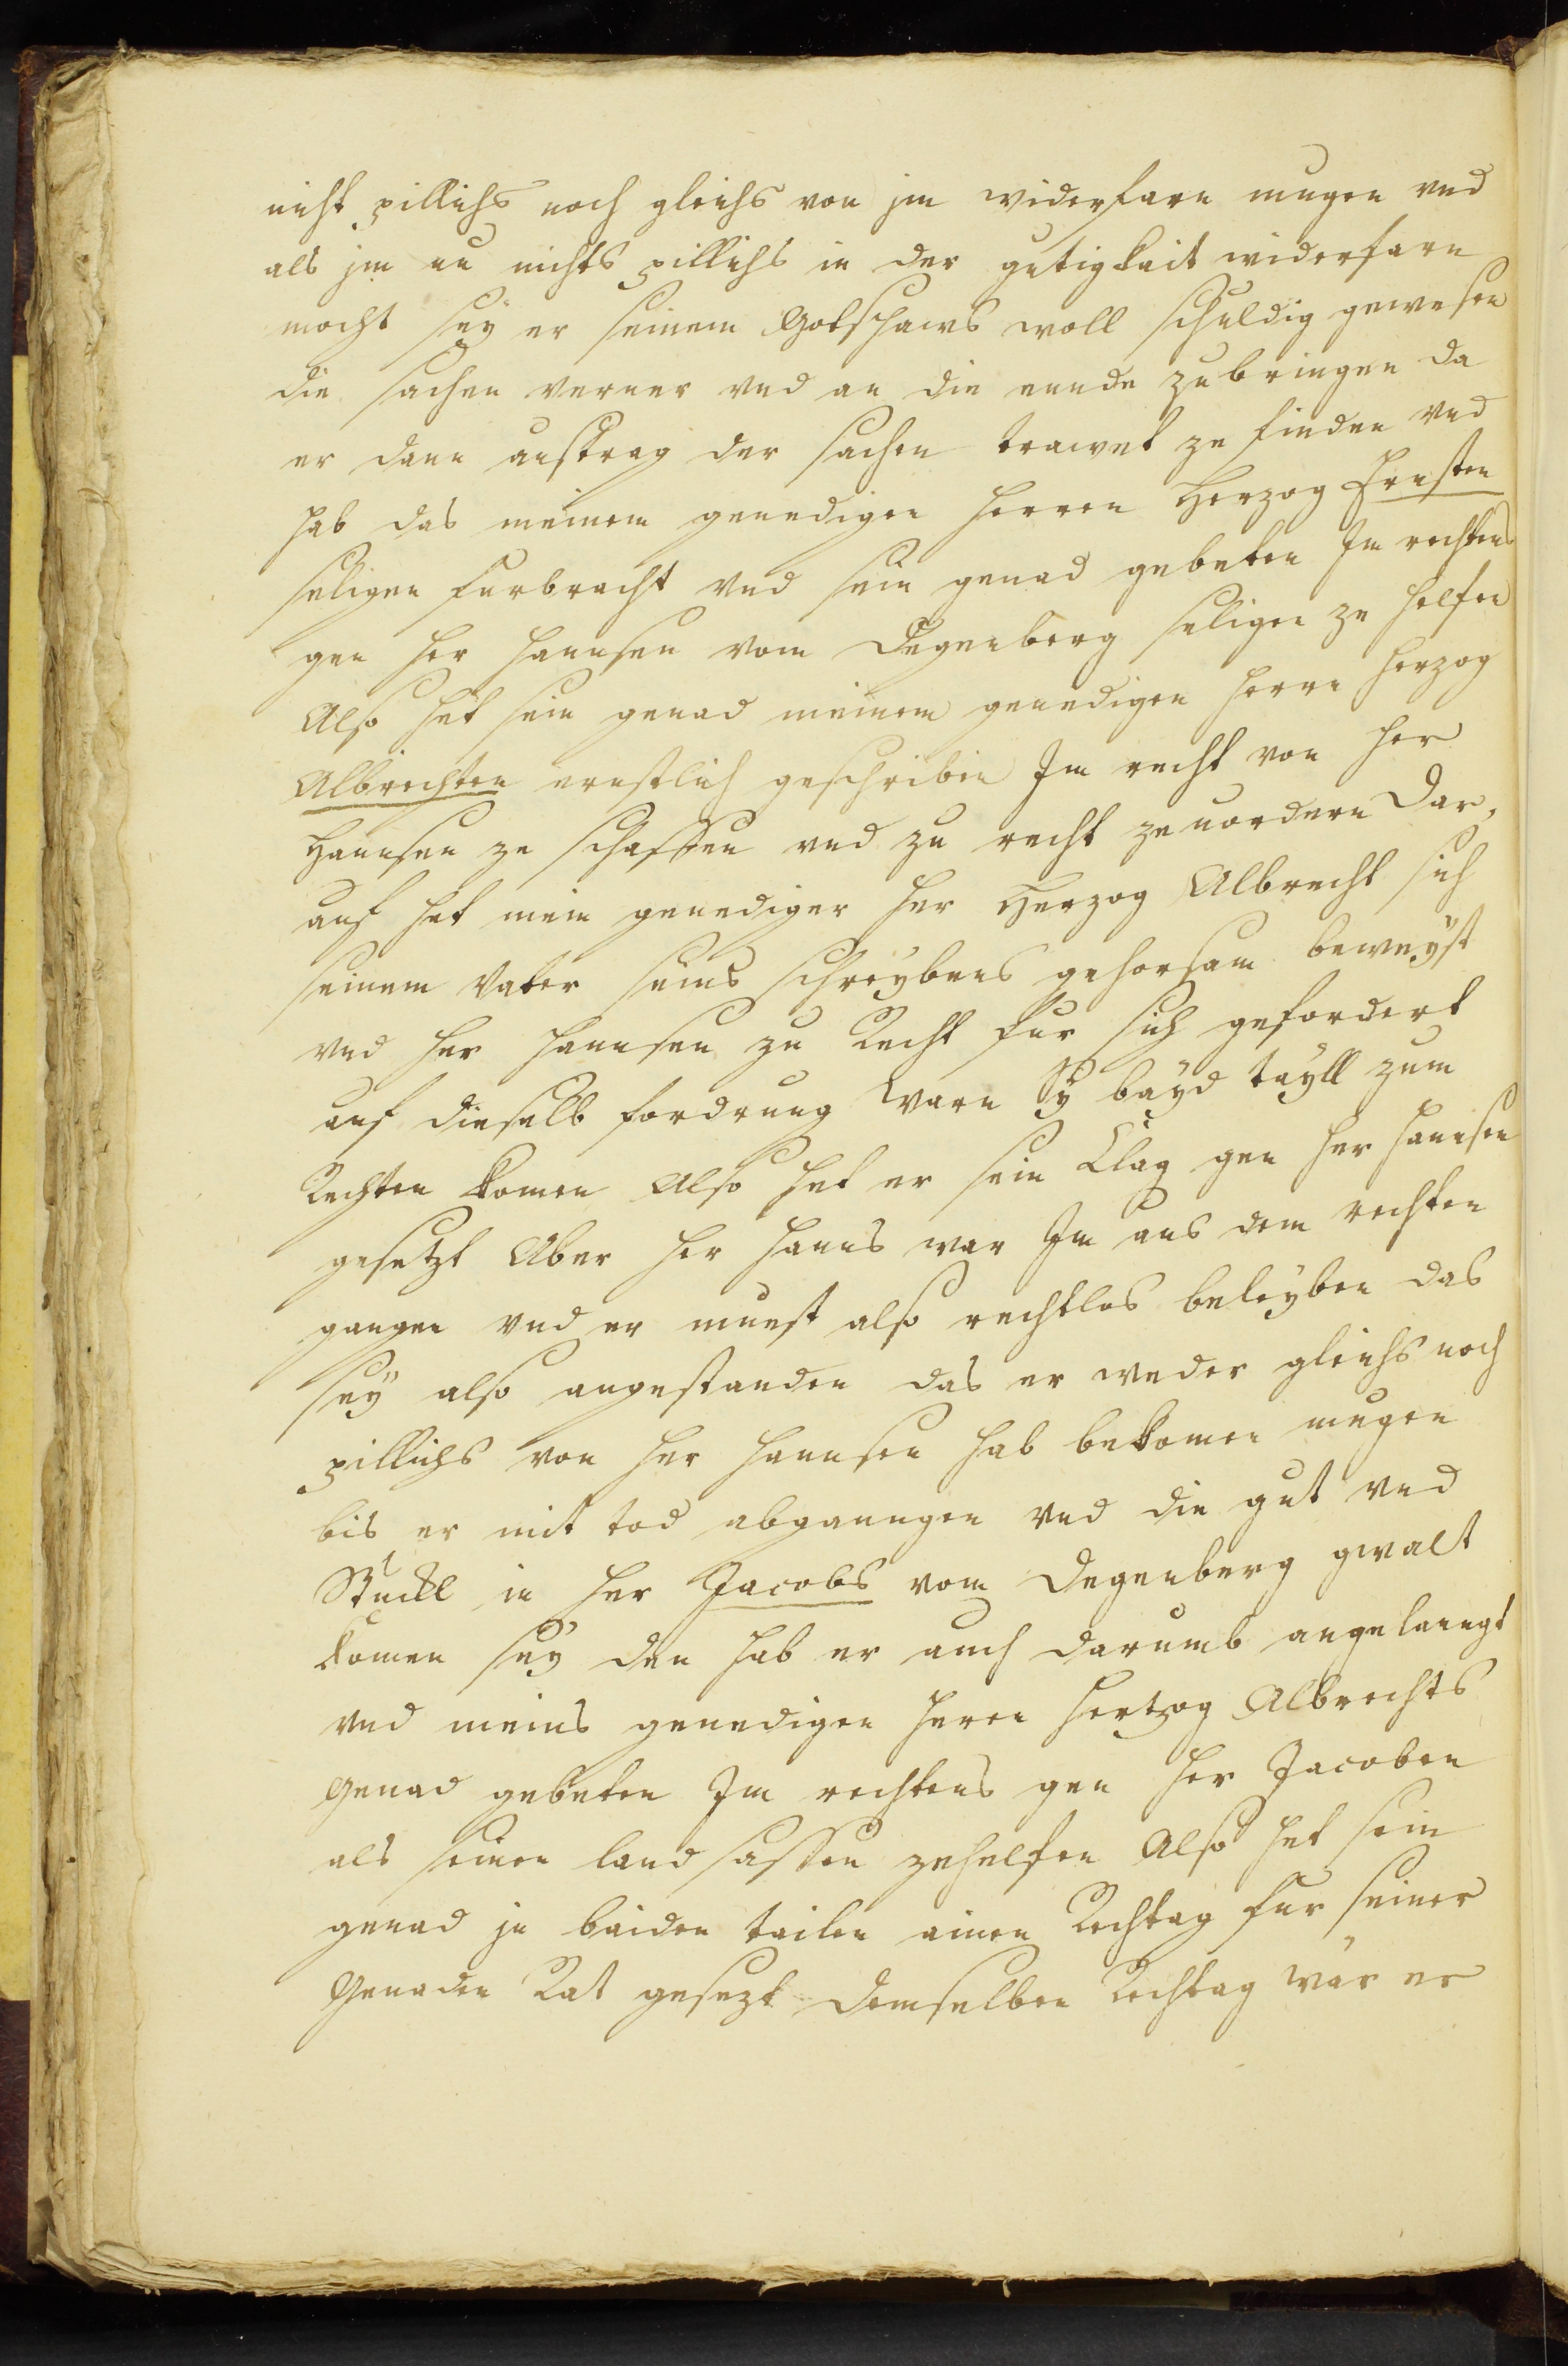 nicht pillichs noch gleichs von jm widerfarn mugen vnd
als jm nu nichts pillichs in der gutigkait widerfarn
mocht sey er seinem Gotshaws woll schuldig gewesen
die sachen verner vnd an die ennde zubringen da
er dann austrag der sachen trawet ze finden vnd
hab das meinem genedigen herren Herzog Ernsten
seligen furbracht vnd sein genad gebeten Im rechtens
gen her hannsen vom Degenberg seligen ze helfen
Also het sein genad meinem genedigen herrn herzog
Albrechten ernstlich geschriben Im recht von her
Hannsen ze schaffen vnd zu recht ze uordern Dar,
auf het mein genediger her Herzog Albrecht sich
seinem Vater seins schreybens gehorsam beweyst
vnd her hannsen zu Recht fur sich gefordert
auf dieselb fordrung warn sy bayd tayll zum
Rechten komen Also het er sein Clag gen her hannsen
gesetzt Aber her hanns war Im aus dem rechten
gangen vnd er muest also rechtlos beleyben das
sey also angestanden das er weder gleichs noch
pillichs von her hannsen hab bekomen mugen
bis er mit tod abganngen vnd die gut vnd
Stuckl in her Jacobs vom Degenberg gwalt
komen sey den hab er auch darumb angelanngt
vnd meins genedigen heren hertzog Albrechts
Genad gebeten Im rechtens gen her Jacoben
als seinen landsassen zehelfen Also het sein
genad jn baiden tailen ainen Rechtag fur seiner
Genaden Rat gesezt demselben Rechtag wär er